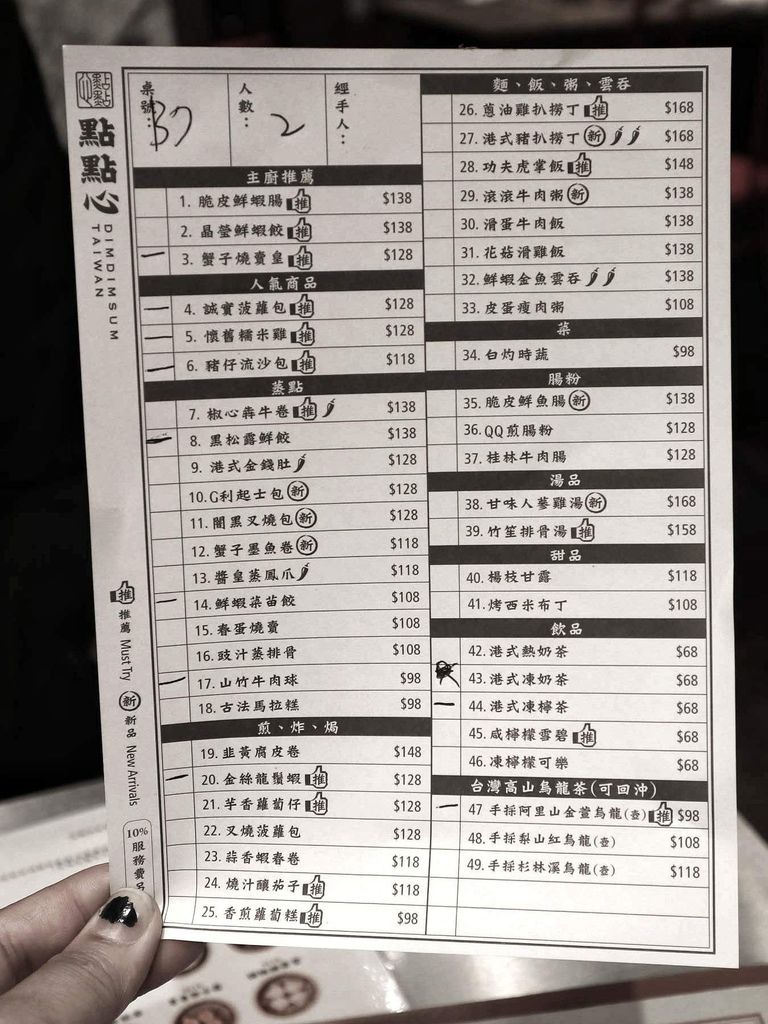 點點心
DIMDIMSUM
TAIWAN
桌號：37
人數：2
經手人：
主廚推薦
1. 脆皮鮮蝦腸 推 $138
2. 晶瑩鮮蝦餃 推 $138
3. 蟹子燒賣皇 推 $128
人氣商品
4. 誠實菠蘿包 推 $128
5. 懷舊糯米雞 推 $128
6. 豬仔流沙包 推 $118
蒸點
7. 椒心犇牛卷 推 $138
8. 黑松露鮮餃 $138
9. 港式金錢肚 $128
10. G利起士包 新 $128
11. 闇黑叉燒包 新 $128
12. 蟹子墨魚卷 新 $118
13. 醬皇蒸鳳爪 $118
14. 鮮蝦菜苗餃 $108
15. 春蛋燒賣 $108
16. 豉汁蒸排骨 $108
17. 山竹牛肉球 $98
18. 古法馬拉糕 $98
煎、炸、焗
19. 韭黃腐皮卷 $148
20. 金絲龍鬚蝦 推 $128
21. 芋香蘿蔔仔 推 $128
22. 叉燒菠蘿包 $128
23. 蒜香蝦春卷 $118
24. 燒汁釀茄子 推 $118
25. 香煎蘿蔔糕 推 $98
麵、飯、粥、雲吞
26. 蔥油雞扒撈丁 推 $168
27. 港式豬扒撈丁 新 $168
28. 功夫虎掌飯 推 $148
29. 滾滾牛肉粥 新 $138
30. 滑蛋牛肉飯 $138
31. 花菇滑雞飯 $138
32. 鮮蝦金魚雲吞 $138
33. 皮蛋瘦肉粥 $108
菜
34. 白灼時蔬 $98
腸粉
35. 脆皮鮮魚腸 新 $138
36. QQ煎腸粉 $128
37. 桂林牛肉腸 $128
湯品
38. 甘味人蔘雞湯 新 $168
39. 竹笙排骨湯 推 $158
甜品
40. 楊枝甘露 $118
41. 烤西米布丁 $108
飲品
42. 港式熱奶茶 $68
43. 港式凍奶茶 $68
44. 港式凍檸茶 $68
45. 咸檸檬雪碧 推 $68
46. 凍檸檬可樂 $68
台灣高山烏龍茶(可回沖)
47 手採阿里山金萱烏龍(壺) 推 $98
48. 手採梨山紅烏龍(壺) $108
49. 手採杉林溪烏龍(壺) $118
推 推薦 Must Try
新 新品 New Arrivals
10%服務費另